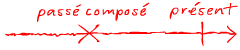 passé composé présent